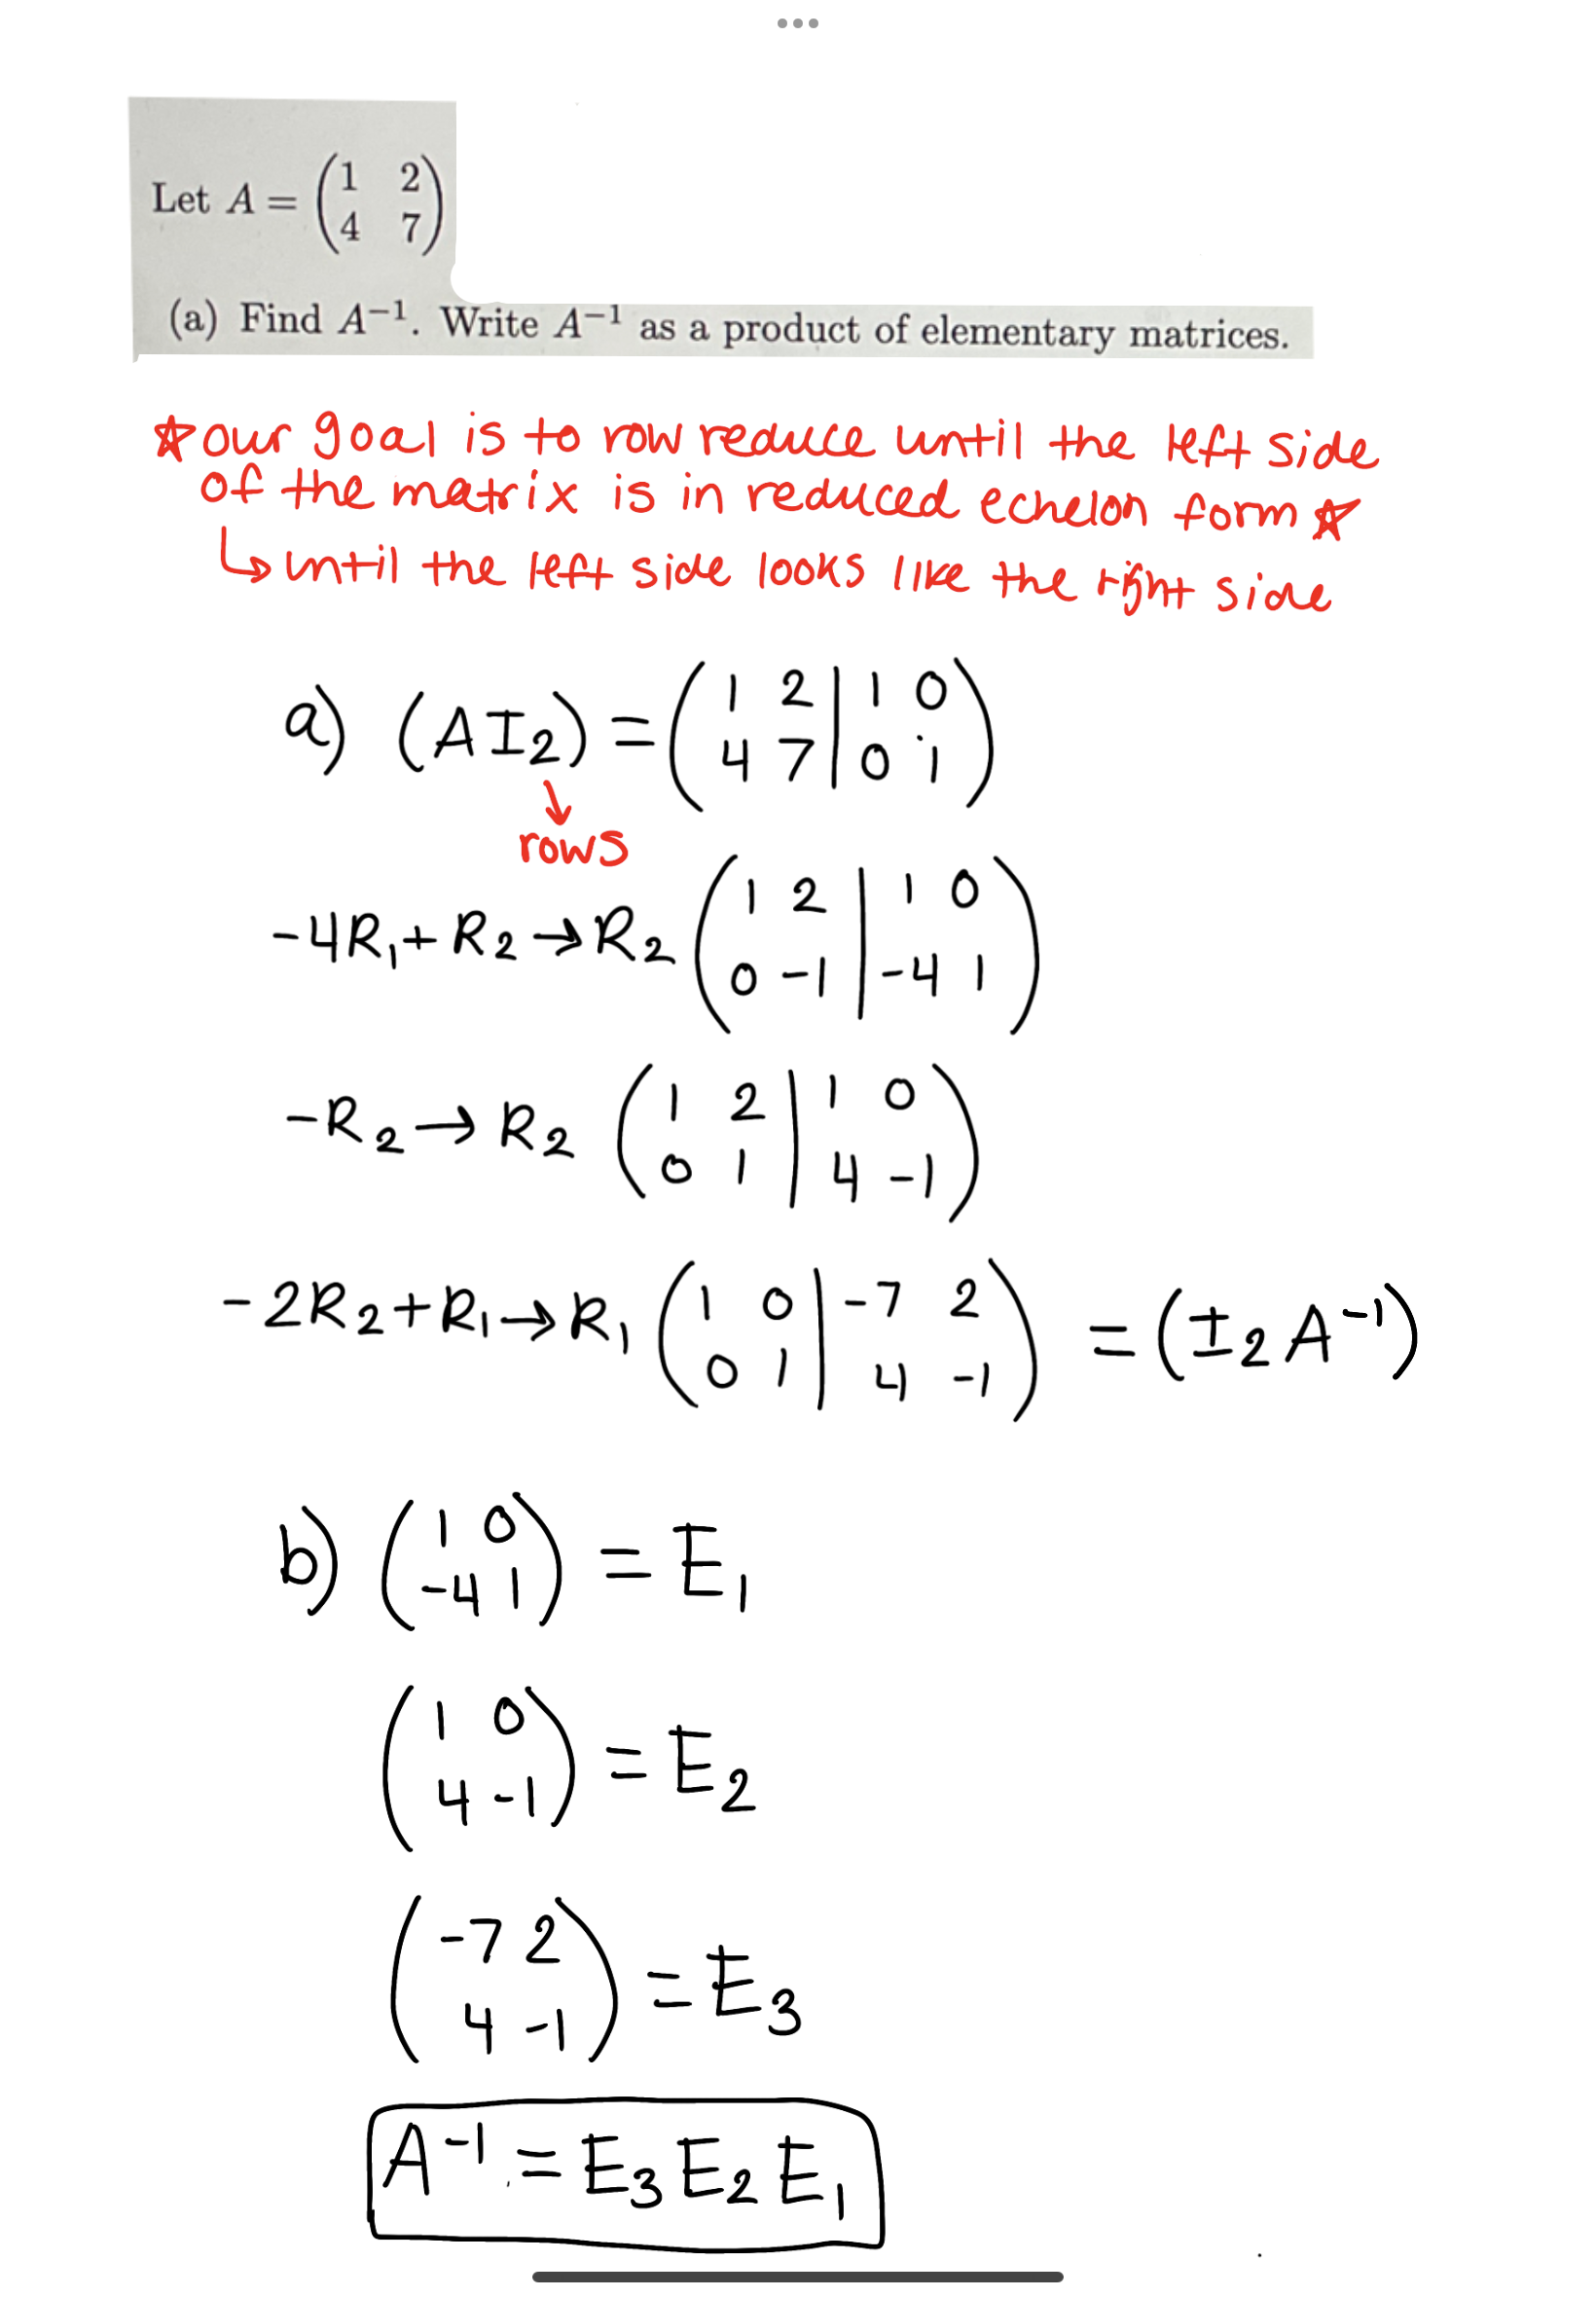 Let A = (1 2
4 7)
(a) Find A⁻¹. Write A⁻¹ as a product of elementary matrices.
☆ our goal is to row reduce until the left side
of the matrix is in reduced echelon form ☆
↳ until the left side looks like the right side
a) (AI₂) = (1 2 | 1 0
4 7 | 0 1)
↓
rows
-4R₁ + R₂ → R₂ (1 2 | 1 0
0 -1 | -4 1)
-R₂ → R₂ (1 2 | 1 0
0 1 | 4 -1)
-2R₂ + R₁ → R₁ (1 0 | -7 2
0 1 | 4 -1) = (I₂ A⁻¹)
b) (1 0
-4 1) = E₁
(1 0
4 -1) = E₂
(-7 2
4 -1) = E₃
A⁻¹ = E₃ E₂ E₁